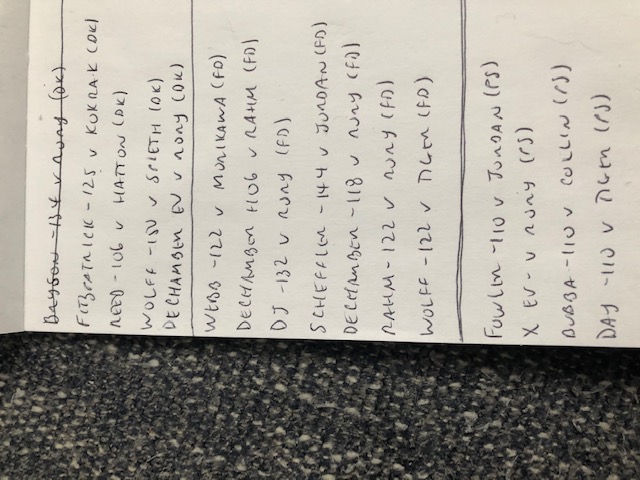 DAYSON -134 v RORY (DK)
FITZPATRICK -125 v KOKRAK (DK)
REED -106 v HATTON (DK)
WOLFF -150 v SPIETH (DK)
DECHAMBER EV v RORY (DK)
WEBB -122 v MORIKAWA (FD)
DECHAMBER +106 v RAHM (FD)
DJ -132 v RORY (FD)
SCHEFFLER -144 v JORDAN (FD)
DECHAMBER -118 v RORY (FD)
RAHM -122 v RORY (FD)
WOLFF -122 v TIGER (FD)
FOWLER -110 v JORDAN (PS)
X EV - v RORY (PS)
BUBBA -110 v COLLIN (PS)
DAY -110 v TIGER (PS)